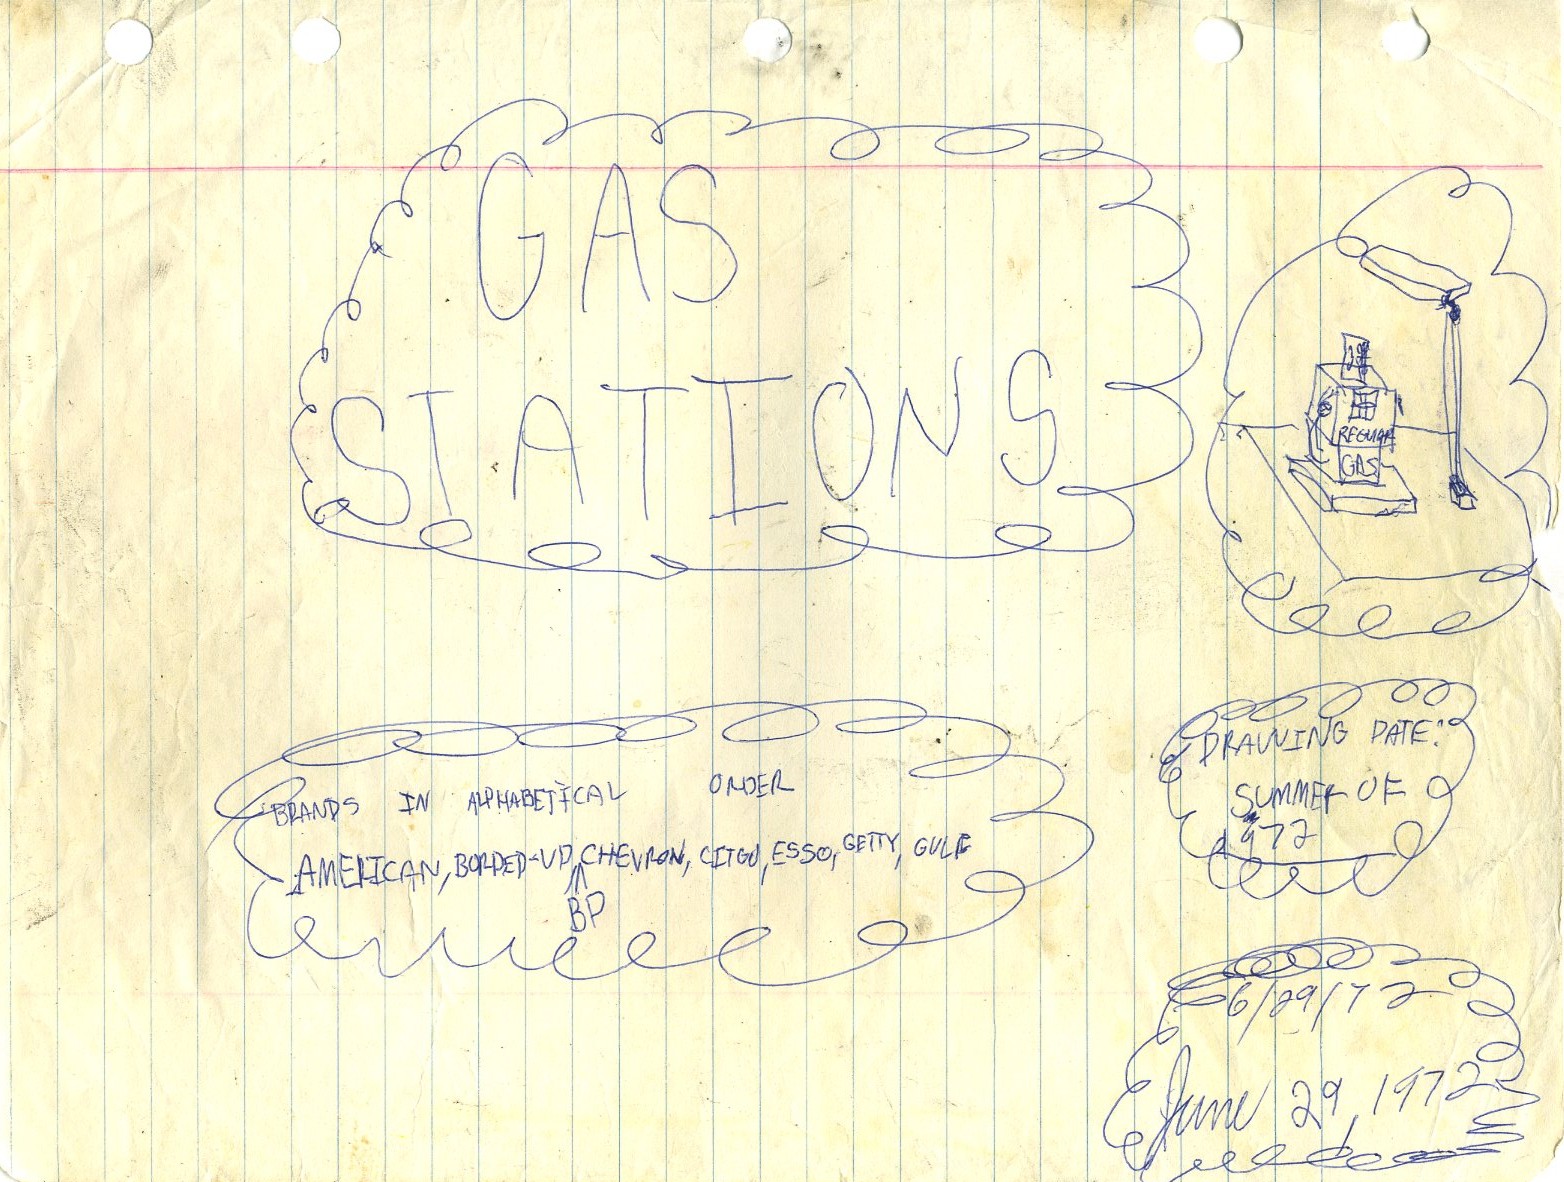 GAS
STATIONS
REGULAR
GAS
BRANDS IN ALPHABETICAL ORDER
AMERICAN, BORDED-UP, CHEVRON, CITGO, ESSO, GETTY, GULF
BP
DRAWING DATE:
SUMMER OF
1972
6/29/72
June 29, 1972